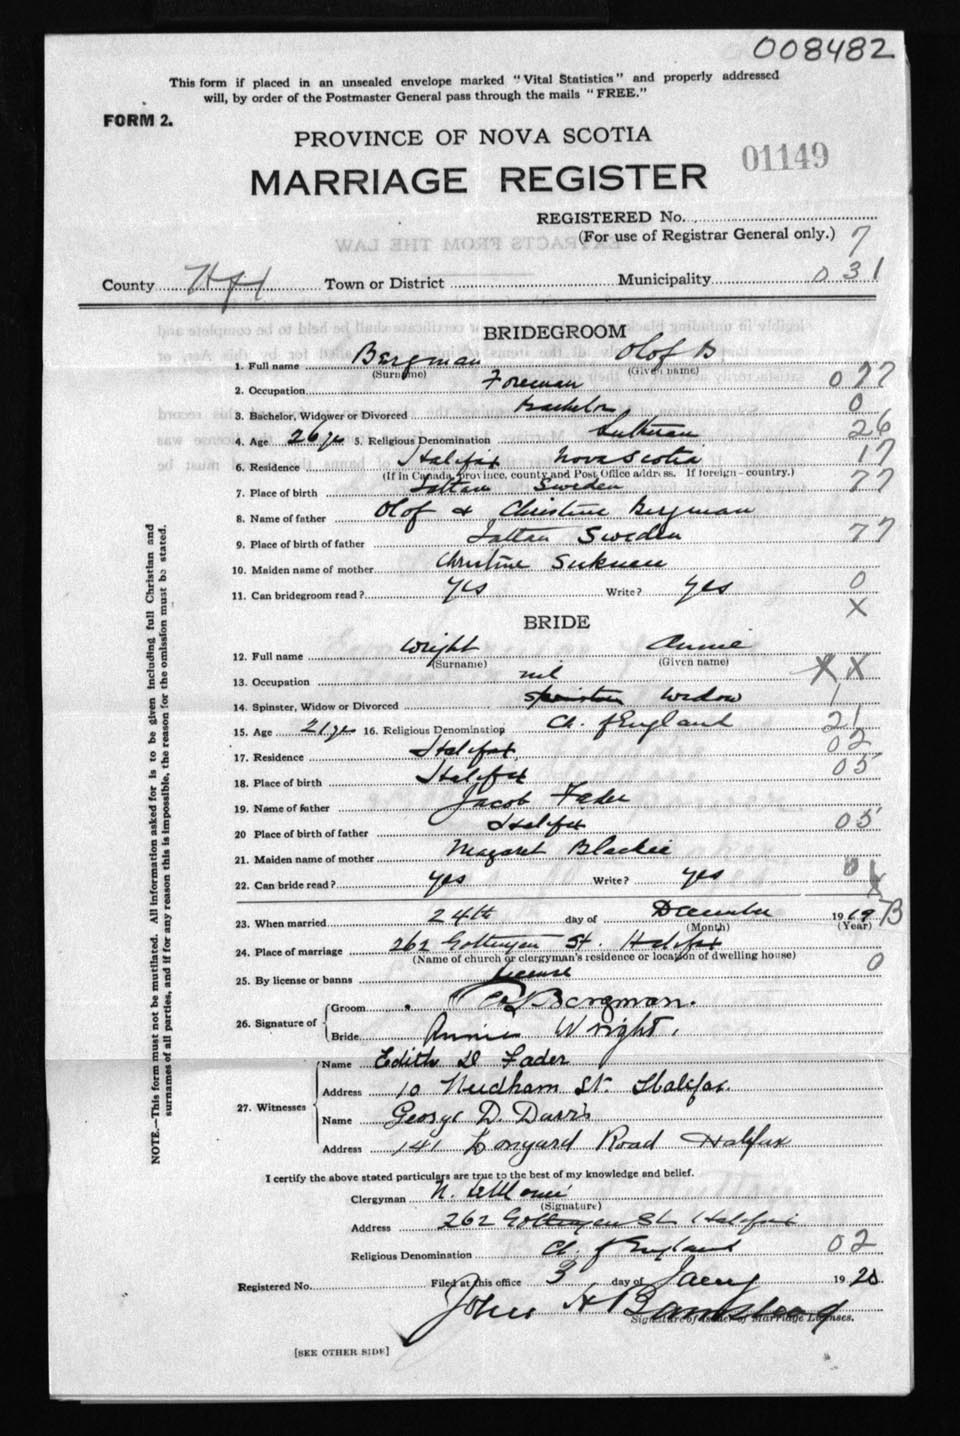 008482
This form if placed in an unsealed envelope marked "Vital Statistics" and properly addressed
will, by order of the Postmaster General pass through the mails "FREE."
FORM 2.
PROVINCE OF NOVA SCOTIA
01149
MARRIAGE REGISTER
REGISTERED No.
(For use of Registrar General only.) 7
County Hfx Town or District Municipality 031
BRIDEGROOM
1. Full name Bergman Olof B
(Surname) (Given name)
2. Occupation Foreman 077
3. Bachelor, Widower or Divorced Bachelor 0
4. Age 26 yrs 5. Religious Denomination Lutheran 26
6. Residence Halifax Nova Scotia 17
(If in Canada, province, county and Post Office address. If foreign - country.)
7. Place of birth Sweden 77
8. Name of father Olof & Christine Bergman
9. Place of birth of father Sweden 77
10. Maiden name of mother Christine
11. Can bridegroom read? Yes Write? Yes 0
X
BRIDE
12. Full name Wright Annie
(Surname) (Given name)
13. Occupation nil X X
14. Spinster, Widow or Divorced Spinster Widow 1
15. Age 21 yrs 16. Religious Denomination Ch. of England 21
17. Residence Halifax 02
18. Place of birth Halifax 05
19. Name of father Jacob Fader
20 Place of birth of father Halifax 05
21. Maiden name of mother Margaret Blackie
22. Can bride read? yes Write? yes 01
X
23. When married 24th day of December 1919 B
(Month) (Year)
24. Place of marriage 262 Gottingen St. Halifax
(Name of church or clergyman's residence or location of dwelling house)
25. By license or banns license 0
26. Signature of
Groom Bergman.
Bride Annie Wright.
27. Witnesses
Name Edith D Fader
Address 10 Needham St. Halifax.
Name George D. Davis
Address 141 Road Halifax
I certify the above stated particulars are true to the best of my knowledge and belief.
Clergyman N. LeMoine
(Signature)
Address 262 Gottingen St Halifax
Religious Denomination Ch. of England 02
Registered No. Filed at this office 3 day of Jany 1920
John H Barnstead
Signature of Issuer of Marriage Licenses.
[SEE OTHER SIDE]
NOTE.—This form must not be mutilated. All information asked for is to be given including full Christian and
surnames of all parties, and if for any reason this is impossible, the reason for the omission must be stated.